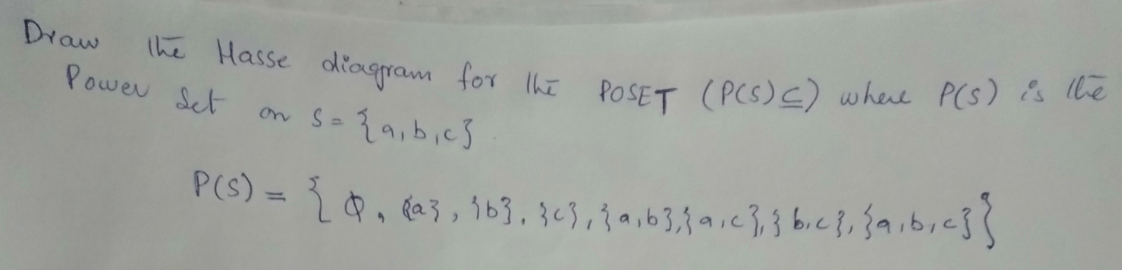 Draw the Hasse diagram for the POSET (P(S)⊆) where P(S) is the
Power Set on S = {a,b,c}
P(S) = { Φ, {a}, {b}, {c}, {a,b}, {a,c}, {b,c}, {a,b,c}}